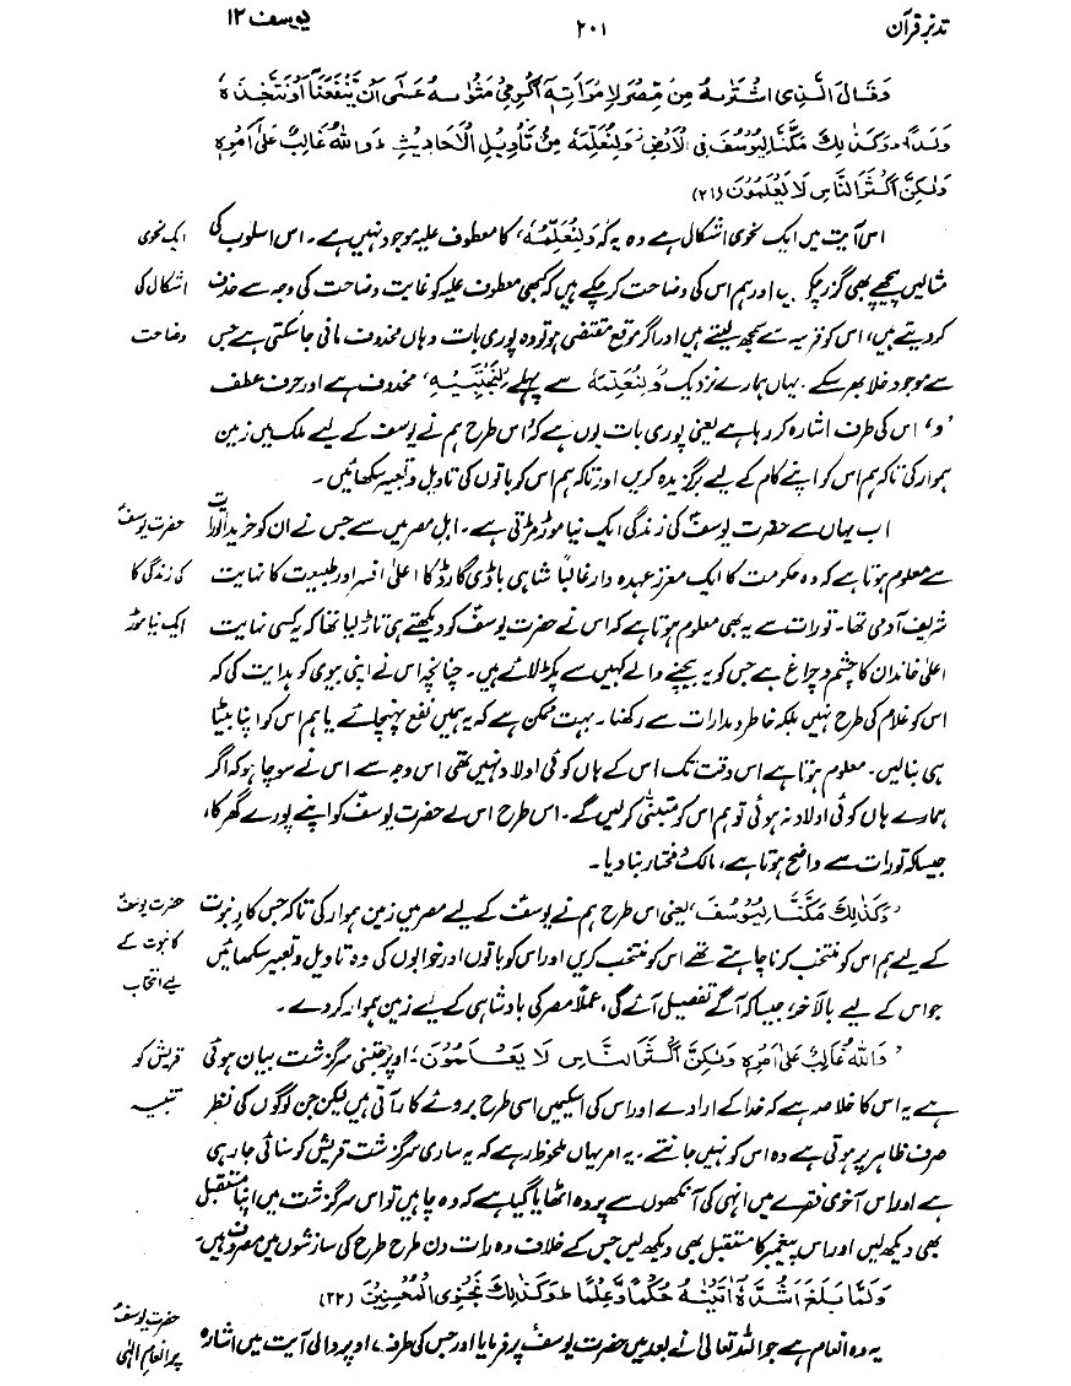 تدبر قرآن ۲۰۱ یوسف ۱۲
وَقَالَ الَّذِی اشْتَرٰىهُ مِنْ مِّصْرَ لِامْرَاَتِهٖٓ اَكْرِمِیْ مَثْوٰىهُ عَسٰٓی اَنْ یَّنْفَعَنَآ اَوْ نَتَّخِذَهٗ
وَلَدًا ؕ وَكَذٰلِكَ مَكَّنَّا لِیُوْسُفَ فِی الْاَرْضِ ؗ وَلِنُعَلِّمَهٗ مِنْ تَاْوِیْلِ الْاَحَادِیْثِ ؕ وَاللّٰهُ غَالِبٌ عَلٰٓی اَمْرِهٖ
وَلٰكِنَّ اَكْثَرَ النَّاسِ لَا یَعْلَمُوْنَ (۲۱)
اس آیت میں ایک نحوی اشکال ہے وہ یہ کہ 'وَلِنُعَلِّمَهٗ' کا معطوف علیہ موجود نہیں ہے۔ اس اسلوب کی
ایک نحوی
مثالیں پیچھے بھی گزر چکی ہیں اور ہم اس کی وضاحت کر چکے ہیں کہ کبھی معطوف علیہ کو غایت وضاحت کی وجہ سے حذف
اشکال کی
کر دیتے ہیں، اس کو قرینہ سے سمجھ لیتے ہیں اور اگر موقع مقتضی ہو تو وہ پوری بات وہاں محذوف مانی جا سکتی ہے جس
وضاحت
سے موجود خلا بھر سکے۔ یہاں ہمارے نزدیک 'وَلِنُعَلِّمَهٗ' سے پہلے 'لِنَجْتَبِیَهٗ' محذوف ہے اور حرف عطف
'و' اس کی طرف اشارہ کر رہا ہے یعنی پوری بات یوں ہے کہ 'اس طرح ہم نے یوسف کے لیے ملک میں زمین
ہموار کی تاکہ ہم اس کو اپنے کام کے لیے برگزیدہ کریں اور تاکہ ہم اس کو باتوں کی تاویل و تعبیر سکھائیں۔
اب یہاں سے حضرت یوسفؑ کی زندگی ایک نیا موڑ مڑتی ہے۔ اہل مصر میں سے جس نے ان کو خریدا تورات
حضرت یوسفؑ
سے معلوم ہوتا ہے کہ وہ حکومت کا ایک معزز عہدہ دار غالباً شاہی باڈی گارڈ کا اعلیٰ افسر اور طبیعت کا نہایت
کی زندگی کا
شریف آدمی تھا۔ تورات سے یہ بھی معلوم ہوتا ہے کہ اس نے حضرت یوسفؑ کو دیکھتے ہی تاڑ لیا تھا کہ یہ کسی نہایت
ایک نیا موڑ
اعلیٰ خاندان کا چشم و چراغ ہے جس کو یہ بیچنے والے کہیں سے پکڑ لائے ہیں۔ چنانچہ اس نے اپنی بیوی کو ہدایت کی کہ
اس کو غلام کی طرح نہیں بلکہ خاطر و مدارات سے رکھنا۔ بہت ممکن ہے کہ یہ ہمیں نفع پہنچائے یا ہم اس کو اپنا بیٹا
ہی بنا لیں۔ معلوم ہوتا ہے اس وقت تک اس کے ہاں کوئی اولاد نہیں تھی اس وجہ سے اس نے سوچا ہو کہ اگر
ہمارے ہاں کوئی اولاد نہ ہوئی تو ہم اس کو متبنّٰی کر لیں گے۔ اس طرح اس نے حضرت یوسفؑ کو اپنے پورے گھر کا،
جیسا کہ تورات سے واضح ہوتا ہے، مالک و مختار بنا دیا۔
'وَكَذٰلِكَ مَكَّنَّا لِیُوْسُفَ' یعنی اس طرح ہم نے یوسفؑ کے لیے مصر میں زمین ہموار کی تاکہ جس کارِ نبوت
حضرت یوسفؑ
کے لیے ہم اس کو منتخب کرنا چاہتے تھے اس کو منتخب کریں اور اس کو باتوں اور خوابوں کی وہ تاویل و تعبیر سکھائیں
کا نبوت کے
جو اس کے لیے بالآخر، جیسا کہ آگے تفصیل آئے گی، عملاً مصر کی بادشاہی کے لیے زمین ہموار کر دے۔
لیے انتخاب
'وَاللّٰهُ غَالِبٌ عَلٰٓی اَمْرِهٖ وَلٰكِنَّ اَكْثَرَ النَّاسِ لَا یَعْلَمُوْنَ'؛ اوپر جتنی سرگزشت بیان ہوئی
قریش کو
ہے یہ اس کا خلاصہ ہے کہ خدا کے ارادے اور اس کی اسکیمیں اسی طرح بروئے کار آتی ہیں لیکن جن لوگوں کی نظر
تنبیہ
صرف ظاہر پر ہوتی ہے وہ اس کو نہیں جانتے۔ یہ امر یہاں ملحوظ رہے کہ یہ ساری سرگزشت قریش کو سنائی جا رہی
ہے اور اس آخری فقرے میں انہی کی آنکھوں سے پردہ اٹھایا گیا ہے کہ وہ چاہیں تو اس سرگزشت میں اپنا مستقبل
بھی دیکھ لیں اور اس پیغمبر کا مستقبل بھی دیکھ لیں جس کے خلاف وہ رات دن طرح طرح کی سازشوں میں مصروف ہیں۔
وَلَمَّا بَلَغَ اَشُدَّهٗٓ اٰتَیْنٰهُ حُكْمًا وَّعِلْمًا ؕ وَكَذٰلِكَ نَجْزِی الْمُحْسِنِیْنَ (۲۲)
حضرت یوسفؑ
یہ وہ انعام ہے جو اللہ تعالیٰ نے بعد میں حضرت یوسفؑ پر فرمایا اور جس کی طرف، اوپر والی آیت میں اشارہ
پر انعام الٰہی